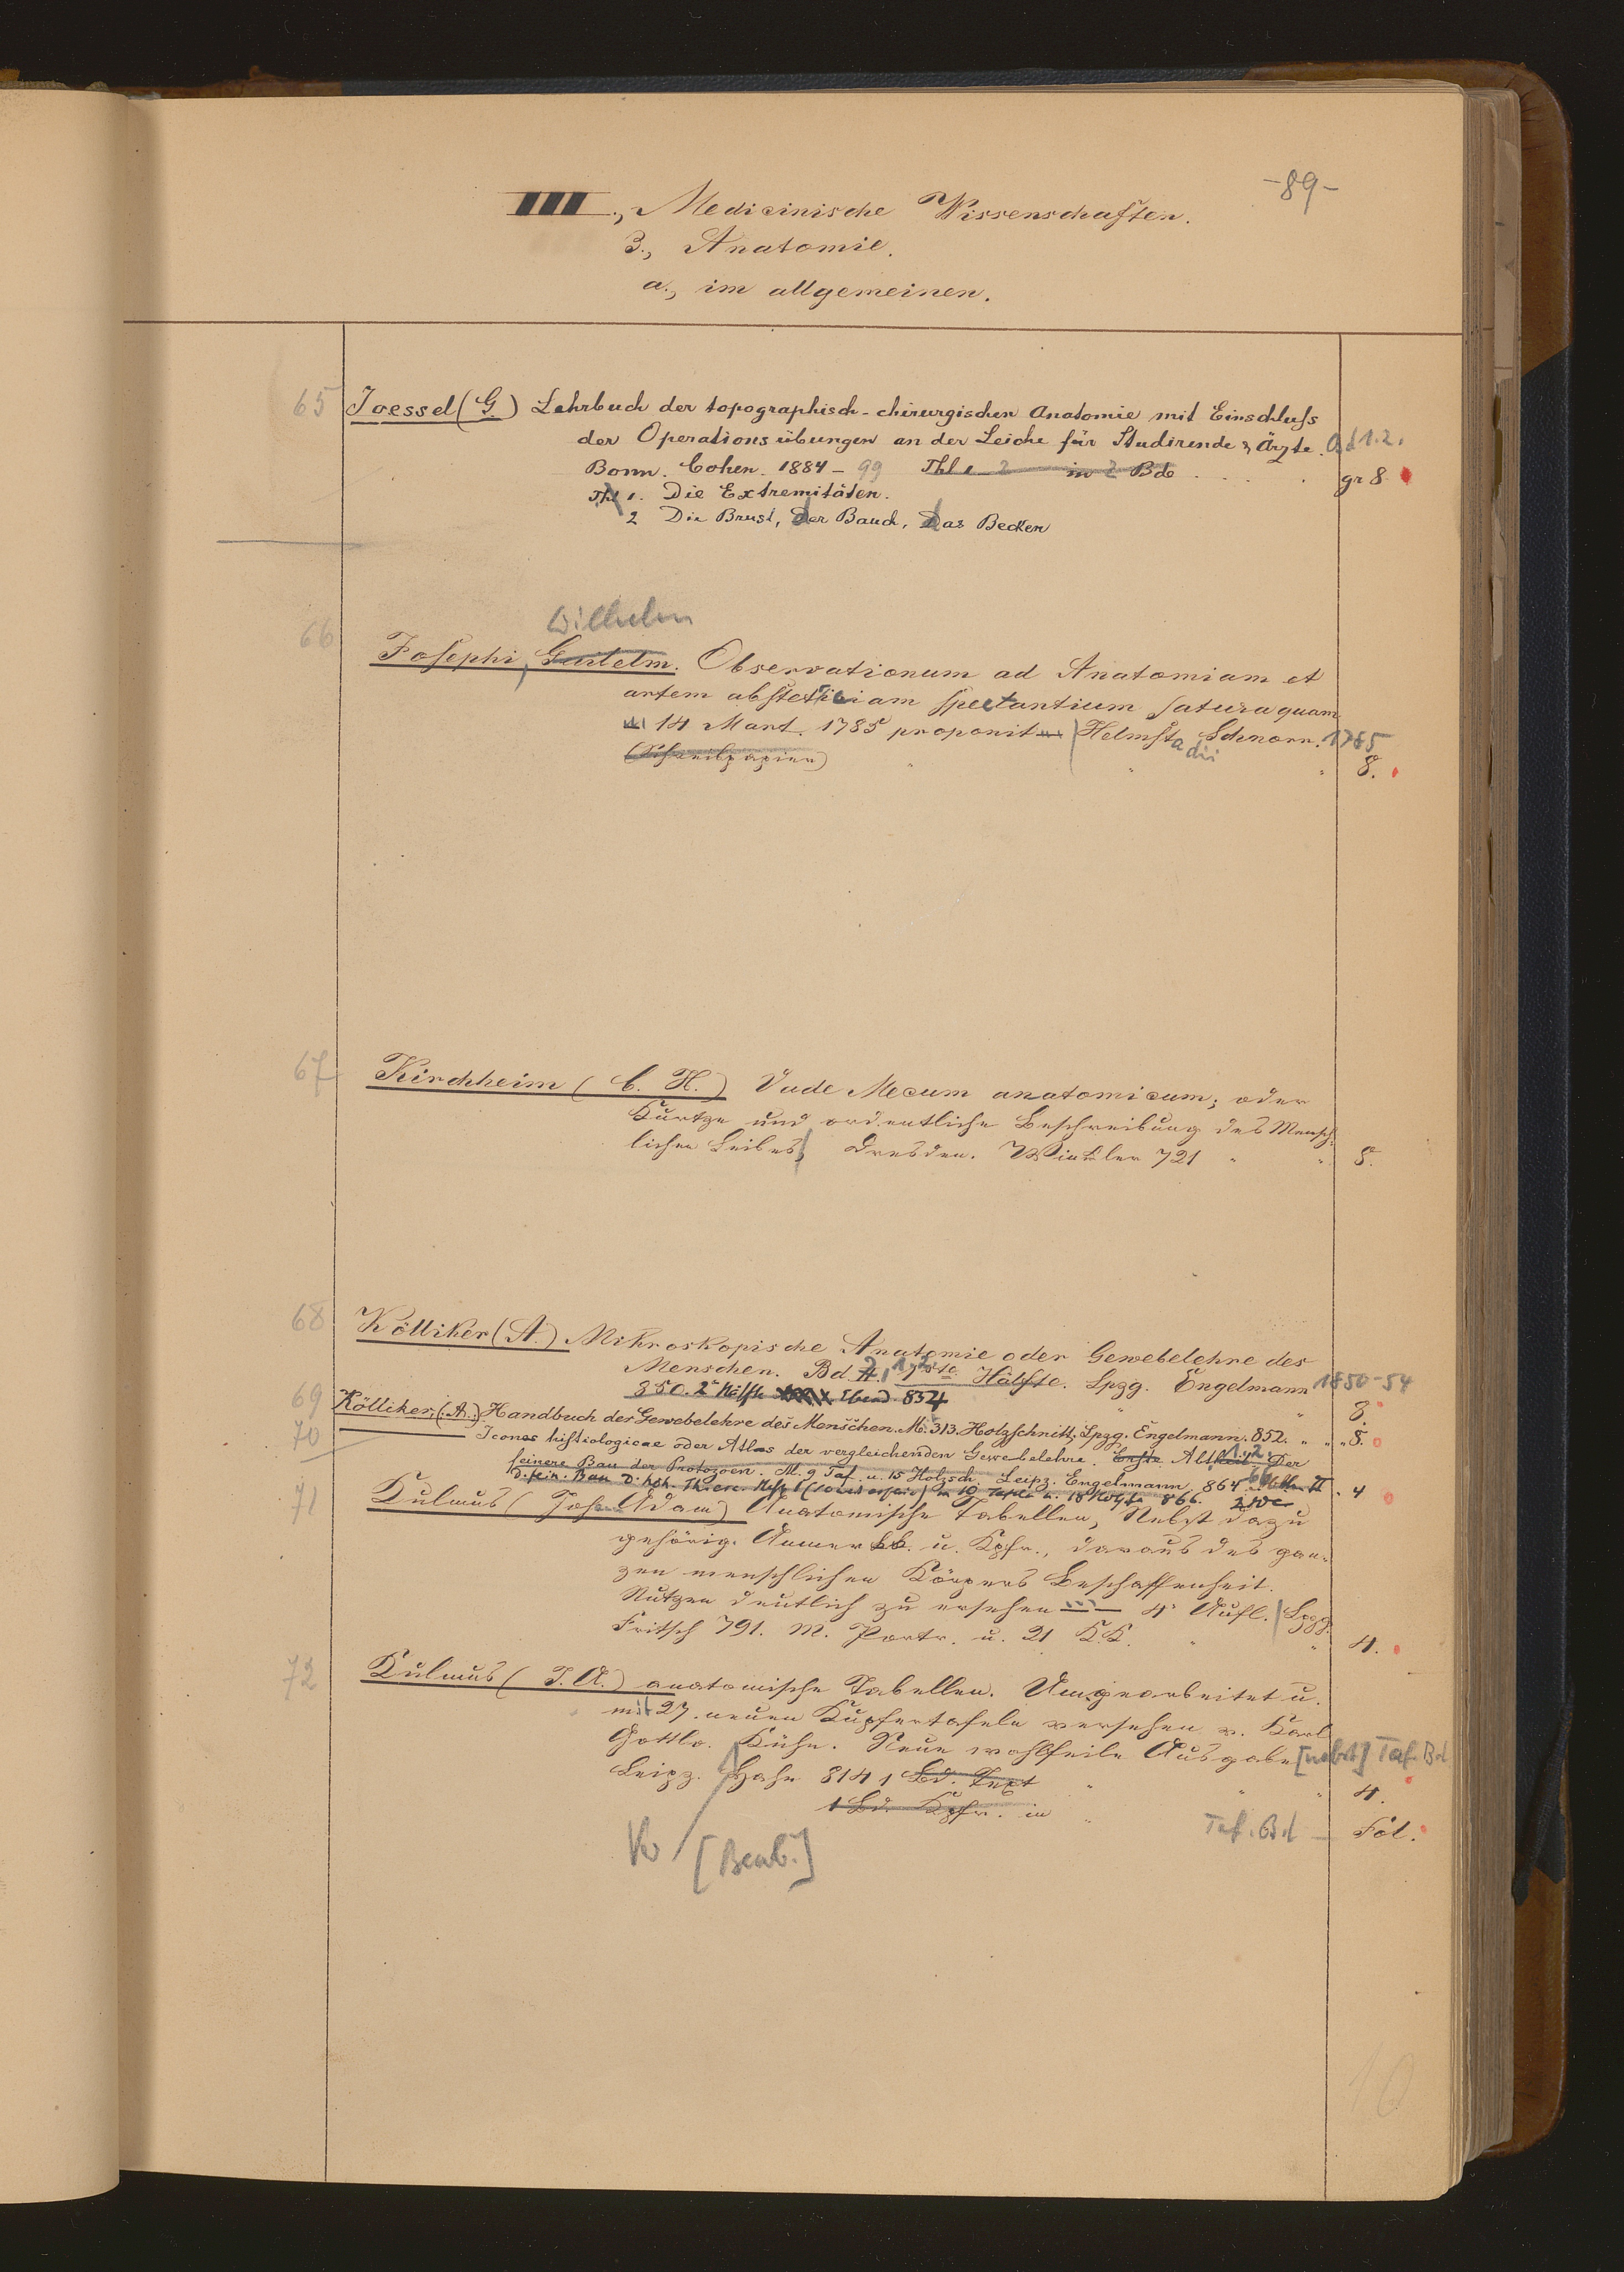 -89-
III., Medicinische Wissenschaften.
3., Anatomie.
a., im allgemeinen.
65 Joessel (G.) Lehrbuch der topographisch-chirurgischen Anatomie mit Einschluſs
der Operationsübungen an der Leiche für Studirende & Ärzte. Bd 1.2.
Bonn. Cohen. 1884-99 Thl 1 2 in 2 Bde . . . . gr 8.
Thl 1. Die Extremitäten.
2 Die Brust, der Bauch, das Becken
Wilhelm
66 Joſephi, Guilelm. Observationum ad Anatomiam et
artem obſtetriciam ſpectantium ſatura quam
14 Mart. 1785 proponit Helmſtadii Schnorr. 1785
(Schreibpapier) " " " 8.
67 Kirchheim (C. H.) Vade Mecum anatomicum; oder
Kurtze und ordentliche Beschreibung des Mensch-
lichen Leibes, Dresden. Winkler 721 " " 8.
68 Kölliker (A.) Mikroskopische Anatomie oder Gewebelehre des
Menschen. Bd. 2, 1, 2 Hälfte. Lpzg. Engelmann 1850-54
850. 2e Hälfte Ebend. 854 " " 8.
69 Kölliker, (A.) Handbuch der Gewebelehre des Menschen. M. 313. Holzſchnitt. Lpzg. Engelmann. 852. " " " 8.
70 Icones hiſtiologicae oder Atlas der vergleichenden Gewebelehre. Erſte Abtheil 1. 2. Der
feinere Bau der Protozoen. M. 9 Taf. u. 15 Holzsch. Leipz. Engelmann, 864-66 Abthn II . 4
D. fein. Bau D. höh. Thiere. Heft I m 10 Tafeln u. 18 Holzſn 866.
71 Kulmus (Joh. Adam) Anatomische Tabellen, Nebst dazu
gehörig. Anmerkk. u. Kpfr., daraus des gan-
zen menschlichen Körpers Beschaffenheit.
Nutzen deutlich zu ersehen 4e Aufl. Lpzg.
Fritsch 791. M. Portr. u. 21 K.K. " " 4.
72 Kulmus (J. A.) anatomische Tabellen. Umgearbeitet u.
mit 27. neuen Kupfertafeln versehen v. Karl
Gottlo. Kühn. Neue wohlfeile Ausgabe [nebst] Taf. Bd
Leipz. Hahn 814 1 Bd. Text " " " 4.
1 Bd. Kpfr. in " Taf. Bd - Fol.
[Bearb.]
10